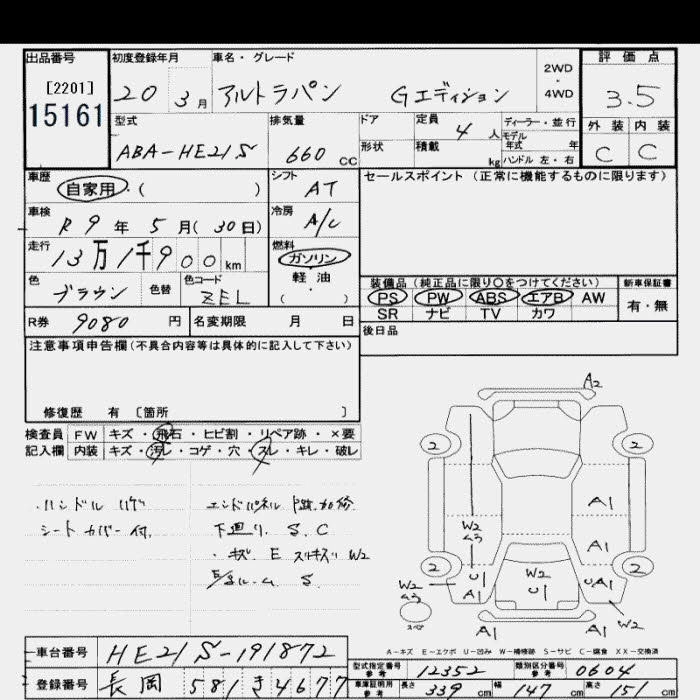 出品番号
[2201]
15161
初度登録年月
20 3月
車名・グレード
アルトラパン Gエディション
2WD
・
4WD
評価点
3.5
外装 内装
C C
型式
ABA-HE21S
排気量
660 CC
ドア
形状
定員
4 人
積載
kg
ディーラー・並行
モデル
年式 年
ハンドル 左・右
車歴
自家用・( )
シフト
AT
セールスポイント(正常に機能するものに限ります)
車検
R9年5月(30日)
冷房
A/C
走行
13万1千900km
燃料
ガソリン
軽油
・
( )
色
ブラウン
色替
色コード
ZEL
装備品(純正品に限り○をつけてください)
PS PW ABS エアB AW
SR ナビ TV カワ
新車保証書
有・無
R券 9080 円
名変期限 月 日
後日品
注意事項申告欄(不具合内容等は具体的に記入して下さい)
修復歴 有 〔箇所 〕
検査員 FW キズ・飛石・ヒビ割・リペア跡・×要
記入欄 内装 キズ・汚レ・コゲ・穴・スレ・キレ・破レ
・ハンドル ハゲ
シートカバー付
エンドパネル
下廻り S.C
・キズ E スリキズ W2
S
A2
2 2
A1
W2
A1
2 2
W2
U1
W2
U1
UA1
A1
A1
W2
スペ
A-キズ E-エクボ U-凹み W-補修跡 S-サビ C-腐食 XX-交換済
車台番号 HE21S-191872
登録番号 長岡 581 き 4677
型式指定番号
参考
12352
類別区分番号
参考
0604
車庫証明用
参考
長さ 339 cm 幅 147 cm 高さ 151 cm